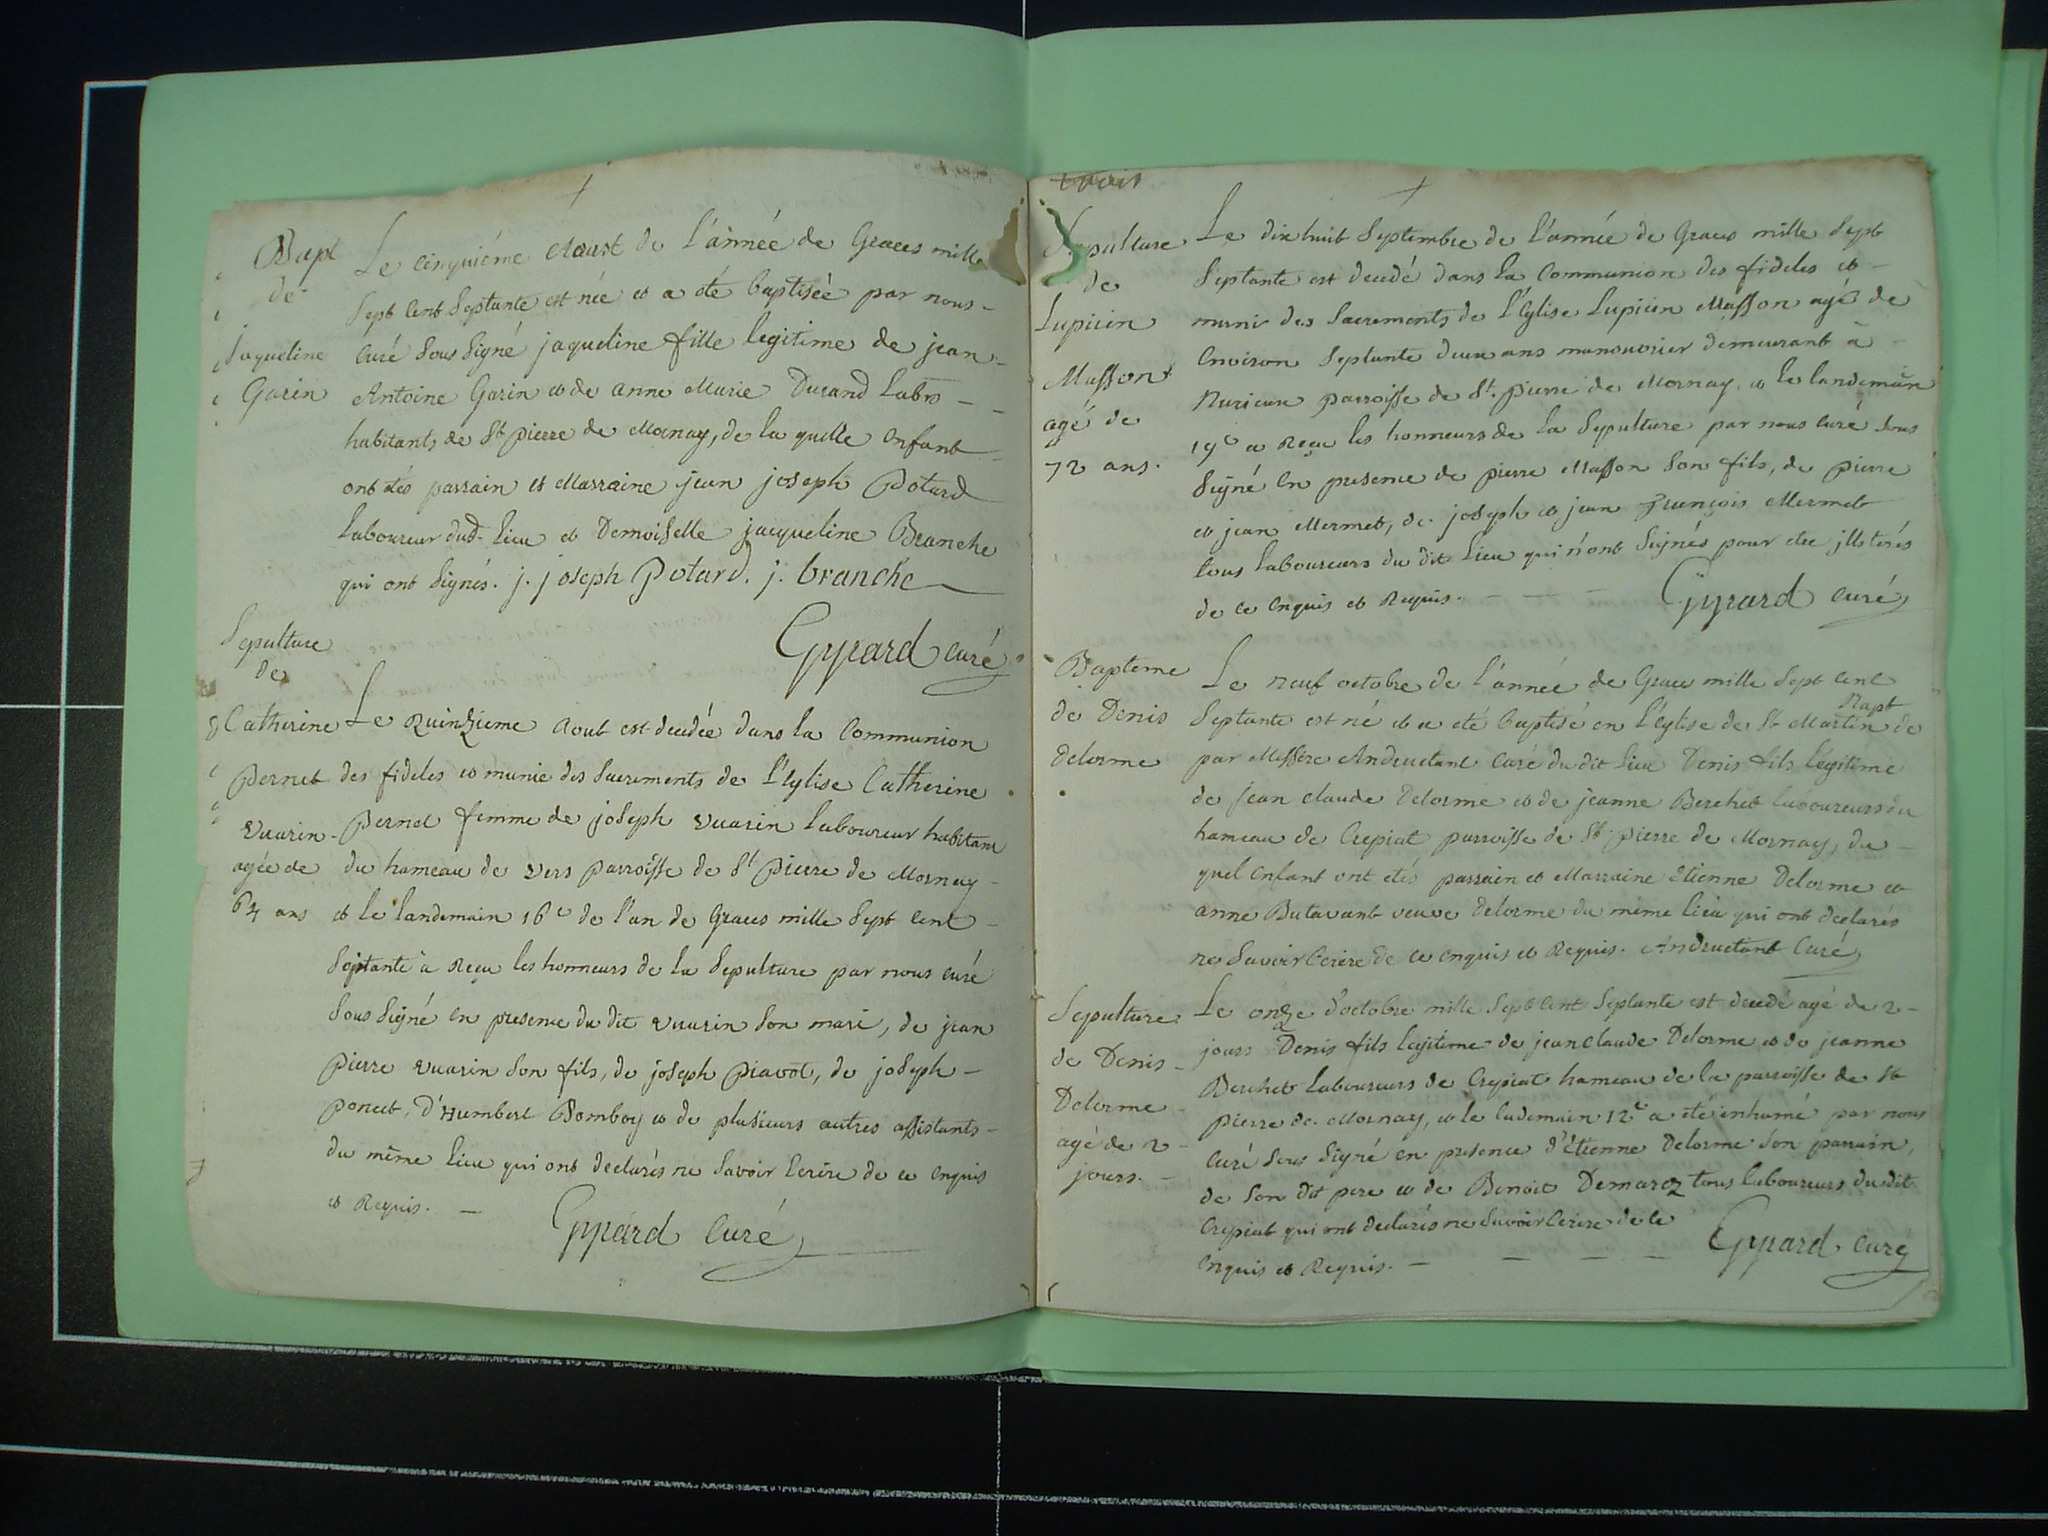 Bapt
de
Jaqueline
Garin
Le cinquiéme Aoust de l'année de Graces mille
sept cent septante est née et a eté baptiseé par nous
curé sous signé jaqueline fille legitime de jean
Antoine Garin et de anne Marie Durand Labrs
habitants de St pierre de Mornay, de la quelle enfant
ont étés parrain et Marraine jean joseph Potard
Laboureur dud. Lieu et Demoiselle jacqueline Branche
qui ont signés. j. joseph Potard. j. branche
Gypard curé
Sepulture
de
Catherine
Pernet
Vuarin
agée de
64 ans
Le Quinzieme Aout est decedée dans la Communion
des fideles et munie des Sacrements de L'eglise Catherine
Pernet femme de joseph Vuarin laboureur habitant
du hameau de Vers parroisse de St Pierre de Mornay
et le landemain 16e de l'an de Graces mille sept cent
septante à reçu les honneurs de la sepulture par nous curé
sous signé en presence du dit Vuarin son mari, de jean
Pierre Vuarin son fils, de joseph Piavot, de joseph
Poncet, d'Humbert Bomboy et de plusieurs autres assistants
du même lieu qui ont declarés ne savoir ecrire de ce enquis
et requis.
Gypard Curé
Sepulture
de
Lupicin
Masson
agé de
72 ans.
Le dix huit Septembre de l'année de Graces mille sept
septante est decedé dans la Communion des fideles et
muni des Sacrements de L'Eglise Lupicin Masson agé de
environ septante deux ans manouvrier demeurant à
Nurieux parroisse de St. pierre de Mornay, et le landemain
19e a reçu les honneurs de la Sepulture par nous curé sous
signé en presence de pierre Masson son fils, de pierre
et jean Mermet, de joseph et jean François Mermet
tous Laboureurs du dit Lieu qui n'ont signés pour etre jlleterés
de ce enquis et requis.
Gypard curé
Bapteme
de Denis
Delorme
Le neuf octobre de l'année de Graces mille sept cent
Napt
septante est né et a eté baptisé en l'Eglise de St Martin de
par Messire Andruetant curé du dit lieu Denis fils légitime
de jean claude Delorme et de jeanne Berchet laboureurs du
hameau de Crepiat parroisse de St pierre de Mornay, du
quel enfant ont etés parrain et Marraine étienne Delorme et
anne Butavant veuve Delorme du même lieu qui ont declarés
ne savoir ecrire de ce enquis et requis. Andruetant Curé
Sepulture
de Denis
Delorme
agé de 2
jours.
Le onze d'octobre mille sept cent septante est decedé agé de 2
jours Denis fils legitime de jean claude Delorme et de jeanne
Berchet Laboureurs de Crepiat hameau de la parroisse de St
pierre de Mornay, et le ladimain 12e a eté enhumé par nous
curé sous signé en presence d'étienne Delorme son parrain,
de son dit pere et de Benoit Demarez tous laboureurs du dit
Crepiat qui ont declarés ne savoir ecrire de ce
enquis et requis.
Gypard curé